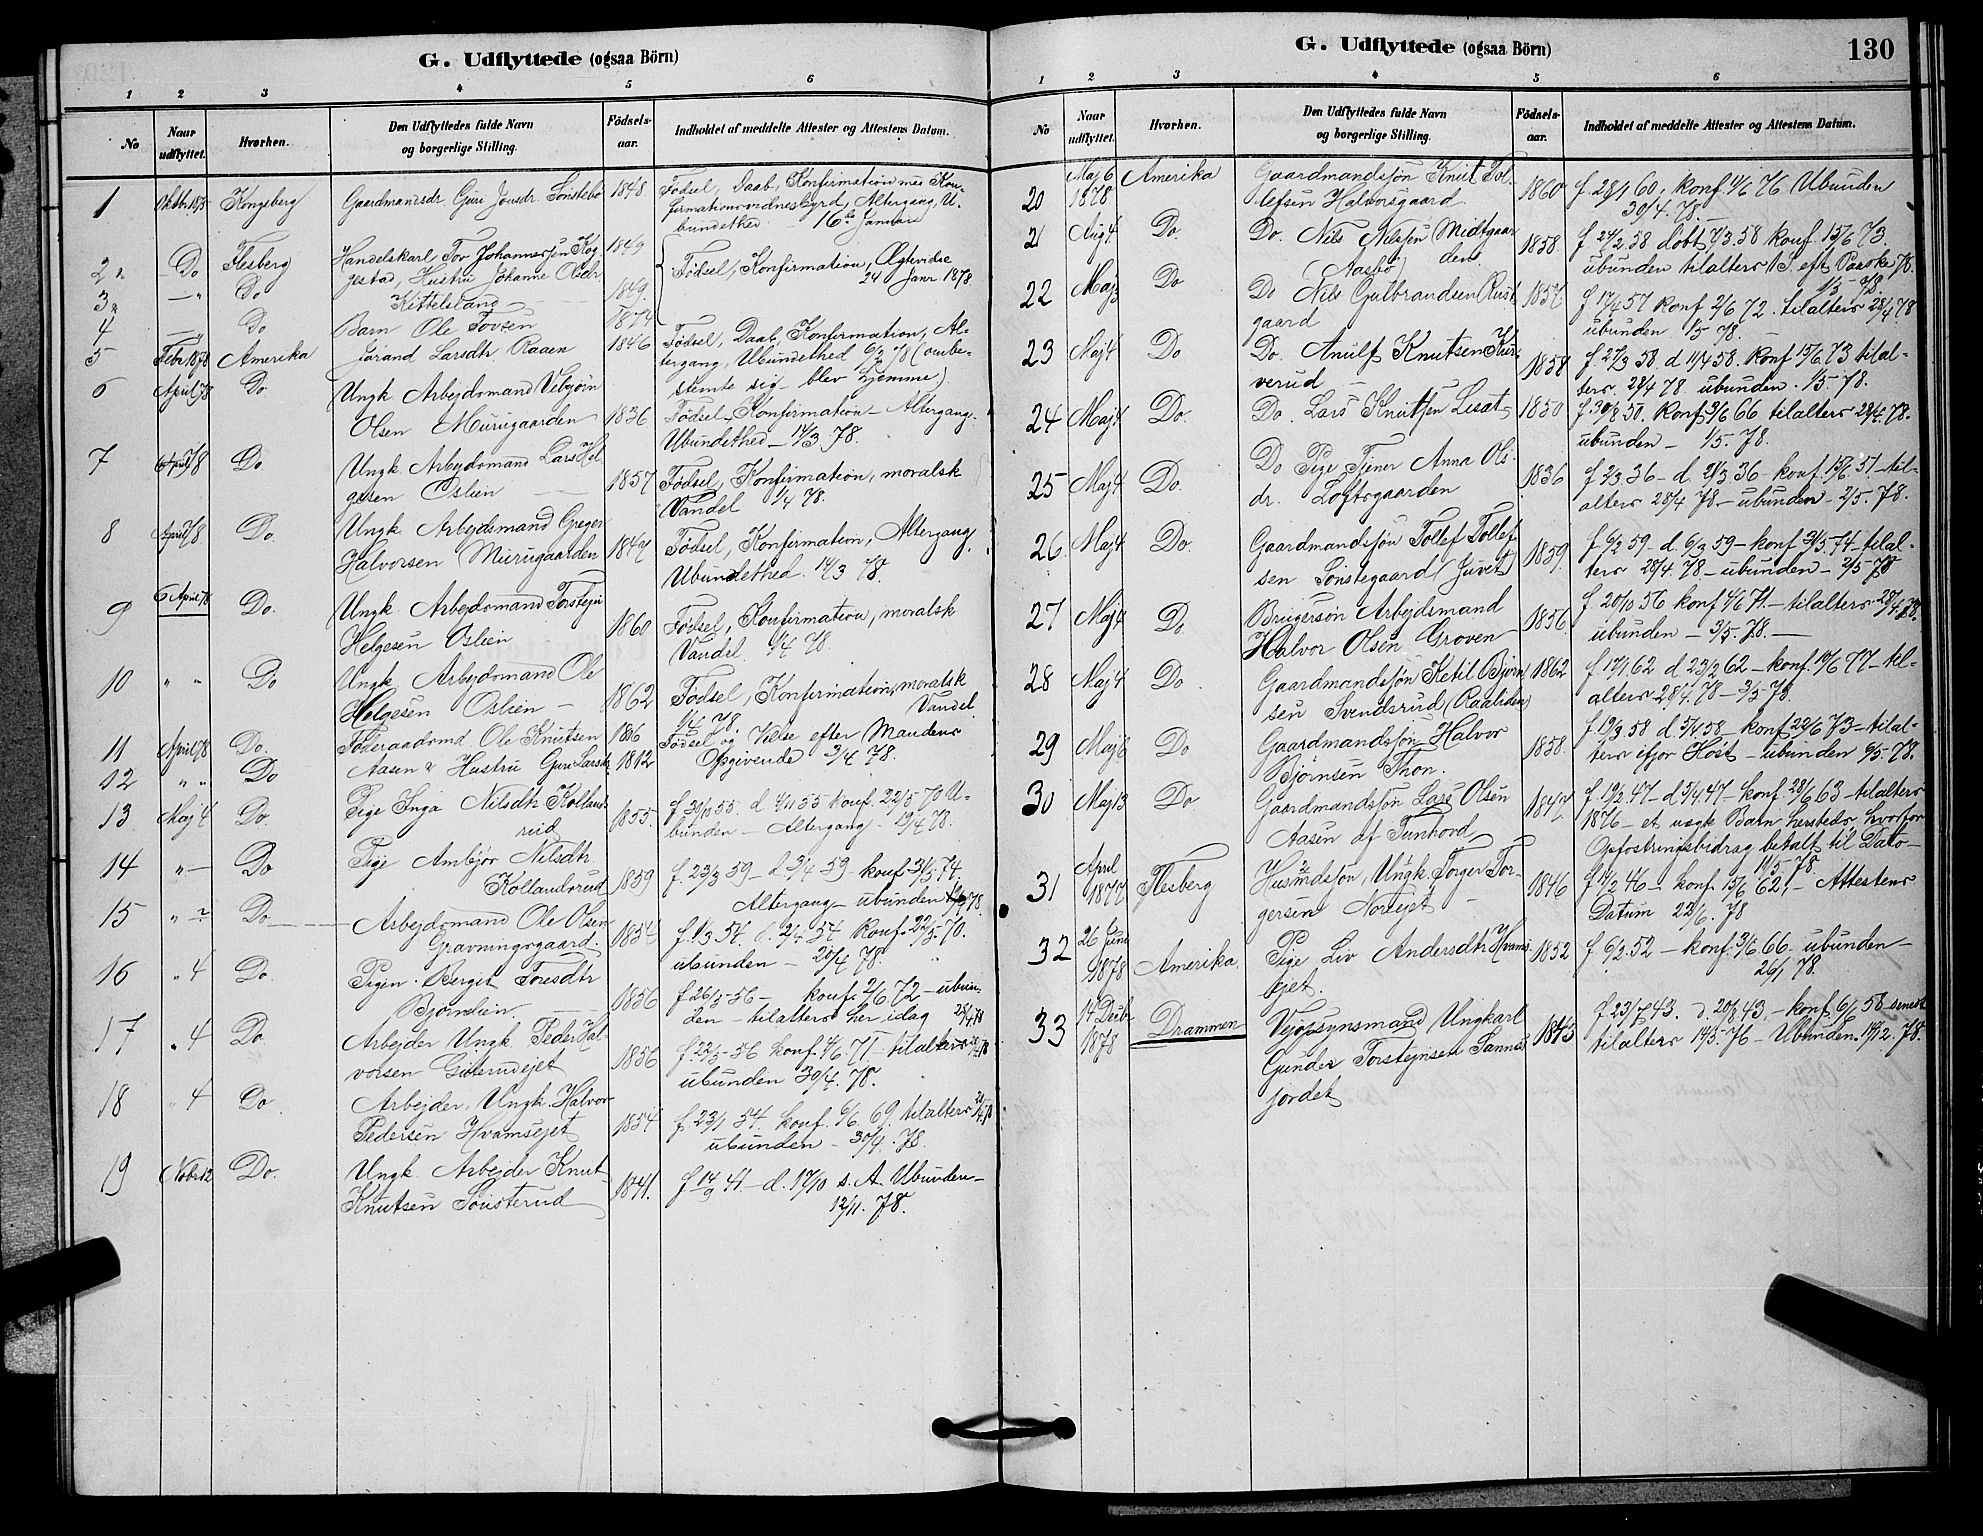 G. Udflyttede (ogsaa Börn)
1 2 3 4 5 6
No
Naar udflyttet.
Hvorhen.
Den Udflyttedes fulde Navn og borgerlige Stilling.
Födsels-aar.
Indholdet af meddelte Attester og Attestens Datum.
1 Kongsberg Gaardmandsdr. Guri Jonsdr. Sønstebø 1848 Fødsel, Daab, Konfirmation
firmationsordnesbyrd, Altergang, U-
bundethed – 16de Januar
2 Do Flesberg Handelskarl Tov Johannessen 1849
3 – " Do Hustru Johanne Olsdr. Kittelsland 1849 Fødsel, Konfirmation, Ægtevidse
24 Janr 1878
4 – " Do Barn Ole Tovsen 1874
5 Febr 1878 Amerika Jørand Larsdtr Raaen 1846 Fødsel, Daab, Konfirmation, Al-
tergang, Ubundethed 6/2 78 (ombe-
stemte sig – blev hjemme)
6 April 78 Do. Ungk. Arbejdsmand Vebjørn
Olsen Murugaarden 1836 Fødsel – Konfirmation – Altergang.
Ubundethed – 14/3 78.
7 6 April 78 Do. Ungk. Arbejdsmand Lars Hel-
gesen Oslien 1857 Fødsel, Konfirmation, moralsk
Vandel 1/4 78.
8 April 78 Do. Ungk. Arbejdsmand Greger
Halvorsen Murugaarden 1847 Fødsel, Konfirmation, Altergang,
Ubundethed. 14/3 78.
9 6 April 78 Do. Ungk. Arbejdsmand Torstejn
Helgesen Oslien 1860 Fødsel, Konfirmation, moralsk
Vandel 1/4 78.
10 " " Do Ungk. Arbejdsmand Ole
Helgesen Oslien – 1862 Fødsel, Konfirmation, moralsk
1/4 78. Vandel
11 April 78 Do. Føderaadsmd Ole Knutsen Fødsel og Vielse efter Mandens
12 " " Do Aasen & Hustru Guri Larsdr. 1812 Opgivende 3/4 78.
13 Maj 4 Do. Pige Inga Nilsdtr Kollands
rud 1855. f. 29/10 55. d 4/11 55 konf. 22/5 70 U-
bunden – Altergang – 19/4 78.
14 " – Do Pige Ambjør Nilsdtr.
Kollandsrud 1859 f. 23/3 59 – d. 3/4 59 – konf. 31/5 74.
Altergang – ubunden 78.
15 " " Do Arbejdsmand Ole Olsen
Gravningsgaard. 1854 f. 1/3 54. d. 2/4 54 Konf. 22/5 70.
ubunden – 20/4 78.
16 " 4 Do. Pigen Bergit Toresdtr
Bjørndien. 1856 f 26/5 56 – konf. 2/6 72 – ubun-
den – tilalters her idag 28/4 78
17 " 4 Do. Arbejder Ungk. Peder Hal-
vorsen Gislerudejet 1856 f. 23/5 56 konf. 4/6 71 – tilalters 28/4 78
ubunden 30/4. 78.
18 " 4 Do. Arbejder, Ungk. Halvor
Pedersen Hvamsejet 1854 f. 23/1 54. konf. 6/6 69. tilalters 28/4 78
ubunden – 30/4. 78.
19 Novbr 12 Do. Ungk. Arbejder Knut
Knutsen Sønsterud 1841. f 14/9 41. – d. 17/10 s. A. Ubunden –
12/11. 78.
G. Udflyttede (ogsaa Börn) 130
1 2 3 4 5 6
No
Naar udflyttet.
Hvorhen.
Den Udflyttedes fulde Navn og borgerlige Stilling.
Födsels-aar.
Indholdet af meddelte Attester og Attestens Datum.
20 Maj 6 1878 Amerika Gaardmandssøn Knut Tol-
lefsen Halvorsgaard 1860 f. 28/1 60, konf. 4/6 76 Ubunden
30/4. 78. –
21 Aug 4 Do. Do. Nils Nilssen Midtgaar-
den (Aasbø) 1858 f. 24/2 58 døbt 7/3. 58 konf. 15/6 73.
ubunden tilalters 1 S. eft. Paaske 78.
1/5 – 78.
22 Maj 3 Do Do Nils Gulbrandsen Rust-
gaard 1857 f 17/4 57 konf 2/6 72. tilalters 28/4 78
ubunden 1/5 78.
23 Maj 4 Do Do. Anulf Knutsen
verud – 1858 f 27/3 58. d 11/4 58. konf 15/6 73 tilal-
ters 28/4 78 ubunden. 1/5 – 78.
24 Maj 4 Do. Do. Lars Knutsen 1850 f. 30/8 50. Konf. 3/6 66 tilalters 28/4 78.
ubunden – 1/5. 78.
25 Maj 4 Do. Do Pige Tjener Anna Ols-
dr. Loftsgaarden 1836 f 2/3 36 – d. 21/3 36 – konf. 15/6 51 – til-
alters 28/4 78 – ubunden – 2/5. 78.
26. Maj 4 Do Gaardmandssøn Tollef Tollef-
sen Sønstegaard (Juvet) 1859. f. 6/2 59 – d. 6/3 59 – konf 31/5 74 – tilal-
ters 28/4. 78 – ubunden – 2/5 78
27 Maj 4 Do Brugersøn Arbejdsmand
Halvor Olsen Groven 1856 f. 20/10 56 konf 4/6 71. – tilalters 28/4 78.
ubunden – 3/5 78. –
28 Maj 4 Do. Gaardmandssøn Ketil Bjørn-
sen Svendsrud (Raaliden) 1862 f 17/1 62 d 23/2 62 – konf. 10/6 77 – til-
alters 28/4. 78 – 3/5 78.
29 Maj 6 Do Gaardmandssøn Halvor
Bjørnsen Thon. 1858. f 19/3 58 d 5/4 58 – konf 22/6 73 – tilal-
ters ifjor Høst – ubunden 6/5. 78.
30 Maj 13 Do Gaardmandssøn Lars Olsen
Aasen af Tunhovd 1847 f 19/2 47 – d 5/4 47 – konf 28/6 63 – tilalters
1876 – et uægt. Barn hersteds hvorfor
Opfostringsbidrag betalt til Dato –
11/5 78.
31 April 1877 Flesberg Husmdssøn, Ungk. Torger Tor-
gersen Norejet – 1846 f 14/2 46 – konf. 15/6 62. – Attestens
Datum 22/6. 78
32 26 Juni 1878 Amerika. Pige Liv Andersdtr Hvams-
ejet. 1852 f 6/2. 52 – konf. 3/6 66. – ubunden –
26/1 78.
33 14 Decbr 1878 Drammen Vejopsynsmand Ungkarl
Gunder Torstejnsen Sannes-
jordet 1843 f 23/7 43. d. 20/8 43. – konf. 6/6 58 – senest
tilalters 14/5. 76 – Ubunden. 14/12. 78.